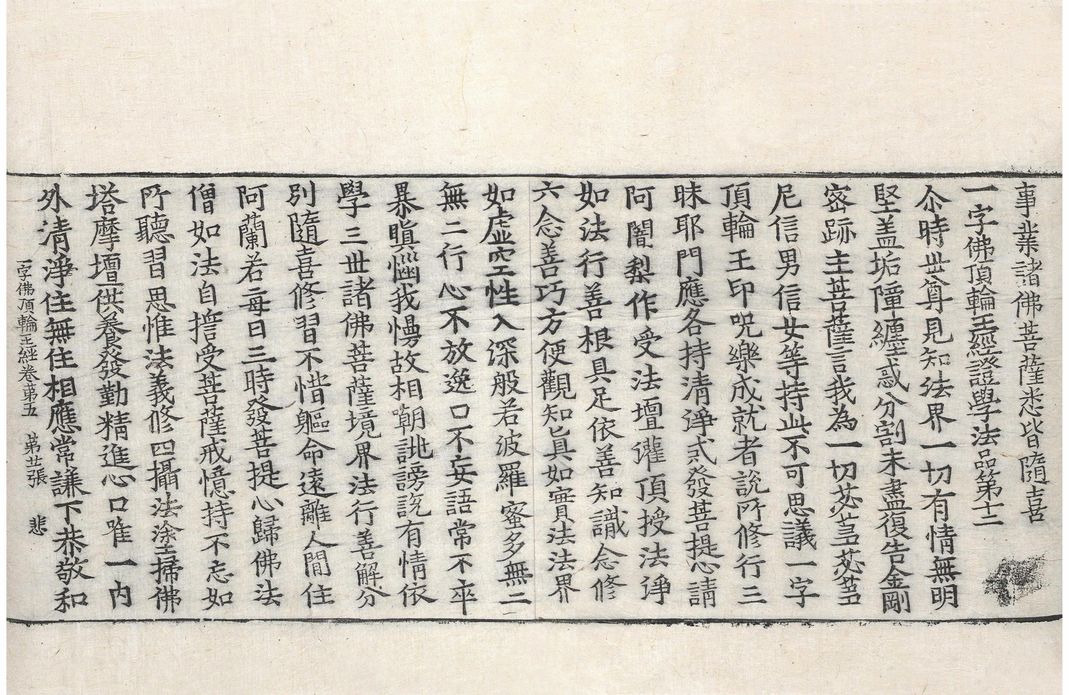 事業諸佛菩薩悉皆隨喜
一字佛頂輪王經證學法品第十二
尒時世尊見知法界一切有情無明
堅盖垢障纏惑分割未盡復告金剛
密跡主菩薩言我為一切苾芻苾芻
尼信男信女等持此不可思議一字
頂輪王印呪樂成就者說所修行三
昧耶門應各持清淨式發菩提心請
阿闍梨作受法壇灌頂授法諍
如法行善根具足依善知識念修
六念善巧方便觀知真如實法法界
如虛空性入深般若波羅蜜多無二
無二行心不放逸口不妄語常不卒
暴瞋惱我慢故相嘲誂謗說有情依
學三世諸佛菩薩境界法行善解分
別隨喜修習不惜軀命遠離人間住
阿蘭若每日三時發菩提心歸佛法
僧如法自誓受菩薩戒憶持不忘如
所聽習思惟法義修四攝法塗掃佛
塔摩壇供養發勤精進心口唯一內
外清淨住無住相應常謙下恭敬和
一字佛頂輪王經卷第五 第廿張 悲